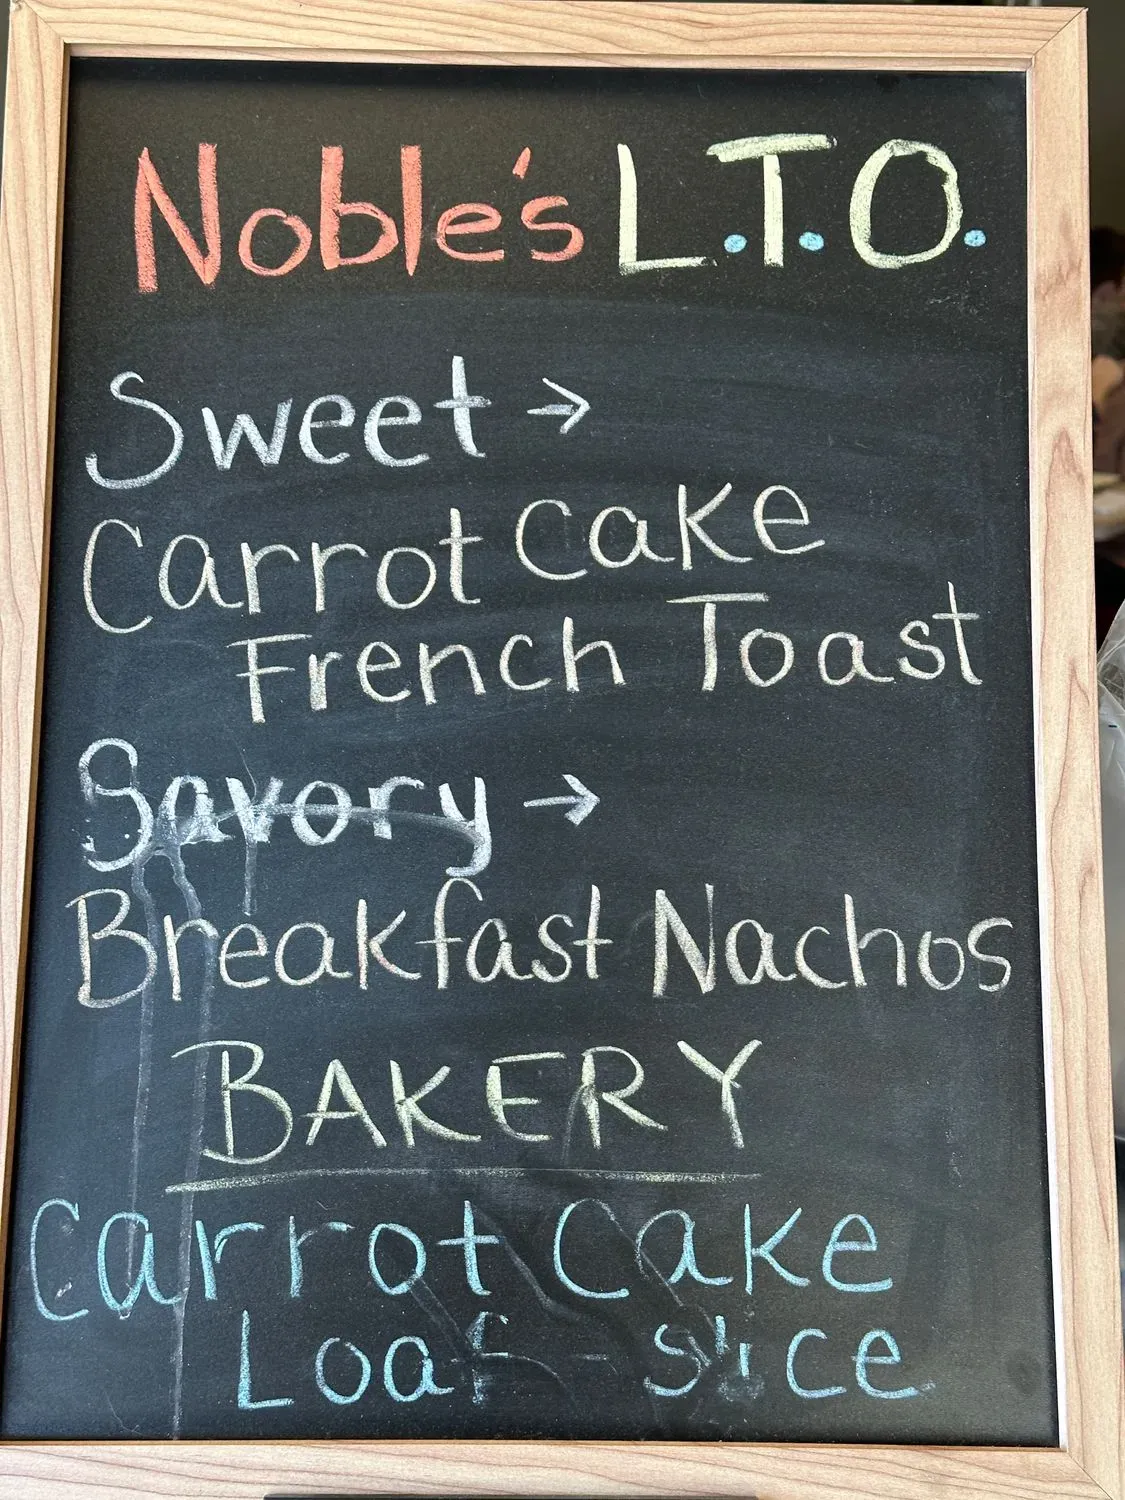 Noble's L.T.O.
Sweet →
Carrot Cake
French Toast
Savory →
Breakfast Nachos
BAKERY
Carrot Cake
Loaf - slice